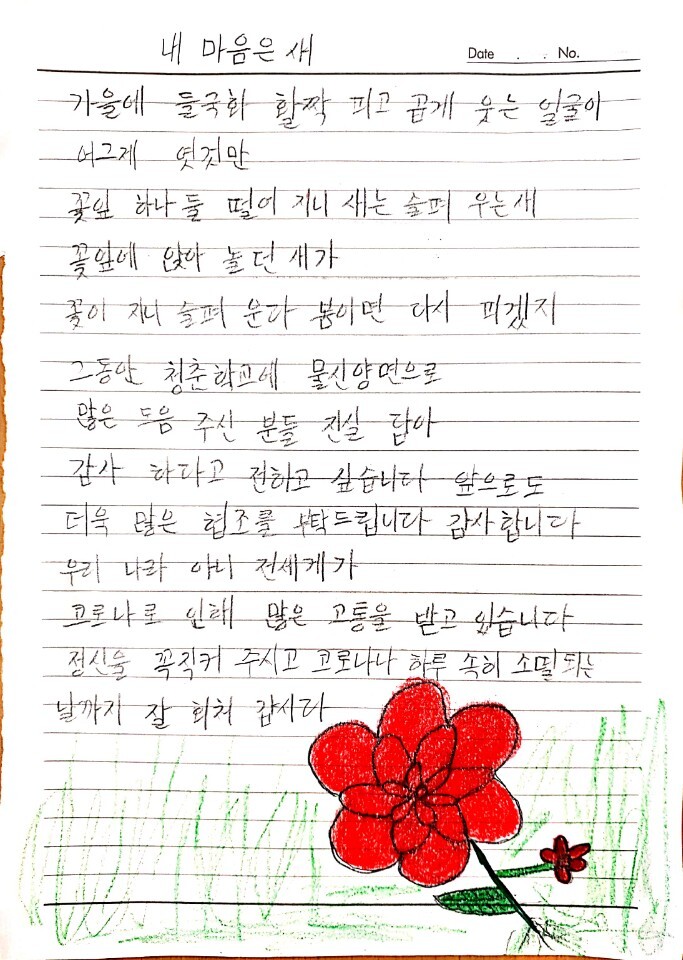 내 마음은 새
Date . . No.
가을에 들국화 활짝 피고 곱게 웃는 얼굴이
어그제 엿것만
꽃잎 하나 둘 떨어 지니 새는 슬퍼 우는새
꽃잎에 앉아 놀던 새가
꽃이 지니 슬퍼 운다 봄이면 다시 피겠지
그동안 청춘학교에 물신양면으로
많은 도음 주신 분들 진실 담아
감사 하다고 전하고 싶습니다 앞으로도
더욱 많은 협조를 부탁드립니다 감사합니다
우리 나라 아니 전세게가
코로나로 인해 많은 고통을 받고 있습니다
정신을 꼭직커 주시고 코로나나 하루 속히 소멸되는
날까지 잘 회처 갑시다